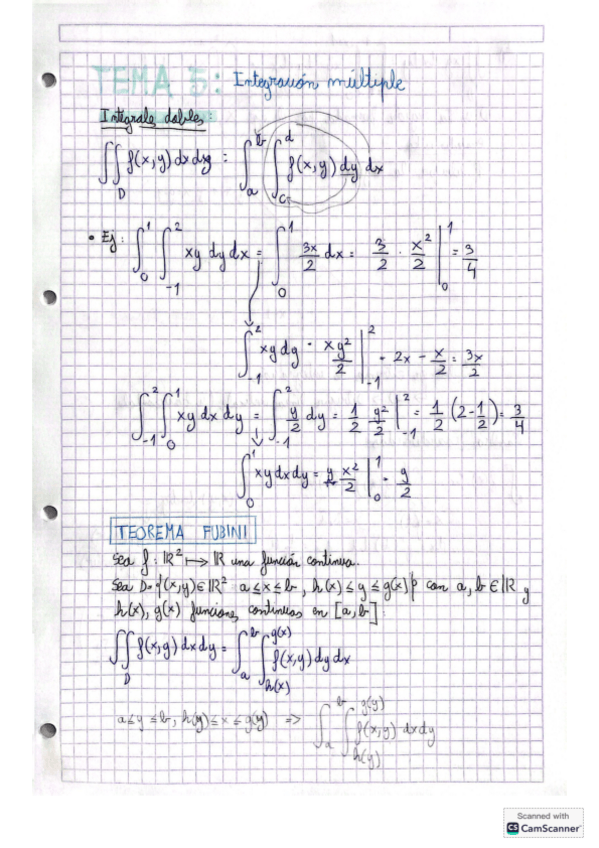 TEMA 5: Integración múltiple
Integrales dobles:
∬_D f(x,y) dx dy = ∫_a^b ∫_c^d f(x,y) dy dx
• Ej: ∫_0^1 ∫_{-1}^2 xy dy dx = ∫_0^1 3x/2 dx = 3/2 · x²/2 |_0^1 = 3/4
∫_{-1}^2 xy dy = xy²/2 |_{-1}^2 = 2x - x/2 = 3x/2
∫_{-1}^2 ∫_0^1 xy dx dy = ∫_{-1}^2 y/2 dy = 1/2 y²/2 |_{-1}^2 = 1/2 (2 - 1/2) = 3/4
∫_0^1 xy dx dy = y x²/2 |_0^1 = y/2
TEOREMA FUBINI
Sea f: ℝ² ↦ ℝ una función continua.
Sea D = {(x,y) ∈ ℝ² : a ≤ x ≤ b, h(x) ≤ y ≤ g(x)} con a, b ∈ ℝ y
h(x), g(x) funciones continuas en [a,b].
∬_D f(x,y) dx dy = ∫_a^b ∫_{h(x)}^{g(x)} f(x,y) dy dx
a ≤ y ≤ b, h(y) ≤ x ≤ g(y) => ∫_a^b ∫_{h(y)}^{g(y)} f(x,y) dx dy
Scanned with
CS CamScanner